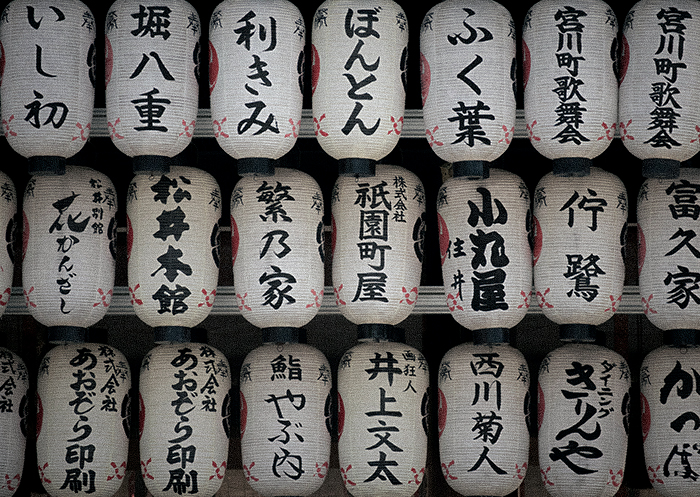 いし初
堀八重
利きみ
ぼんとん
ふく葉
宮川町歌舞会
宮川町歌舞会
松井別館
花かんざし
松井本館
繁乃家
株式会社
祇園町屋
小丸屋
住井
佇鷺
富久家
株式会社
あおぞら印刷
株式会社
あおぞら印刷
鮨やぶ内
画狂人
井上文太
西川菊人
ダイニング
きりんや
かつぱ